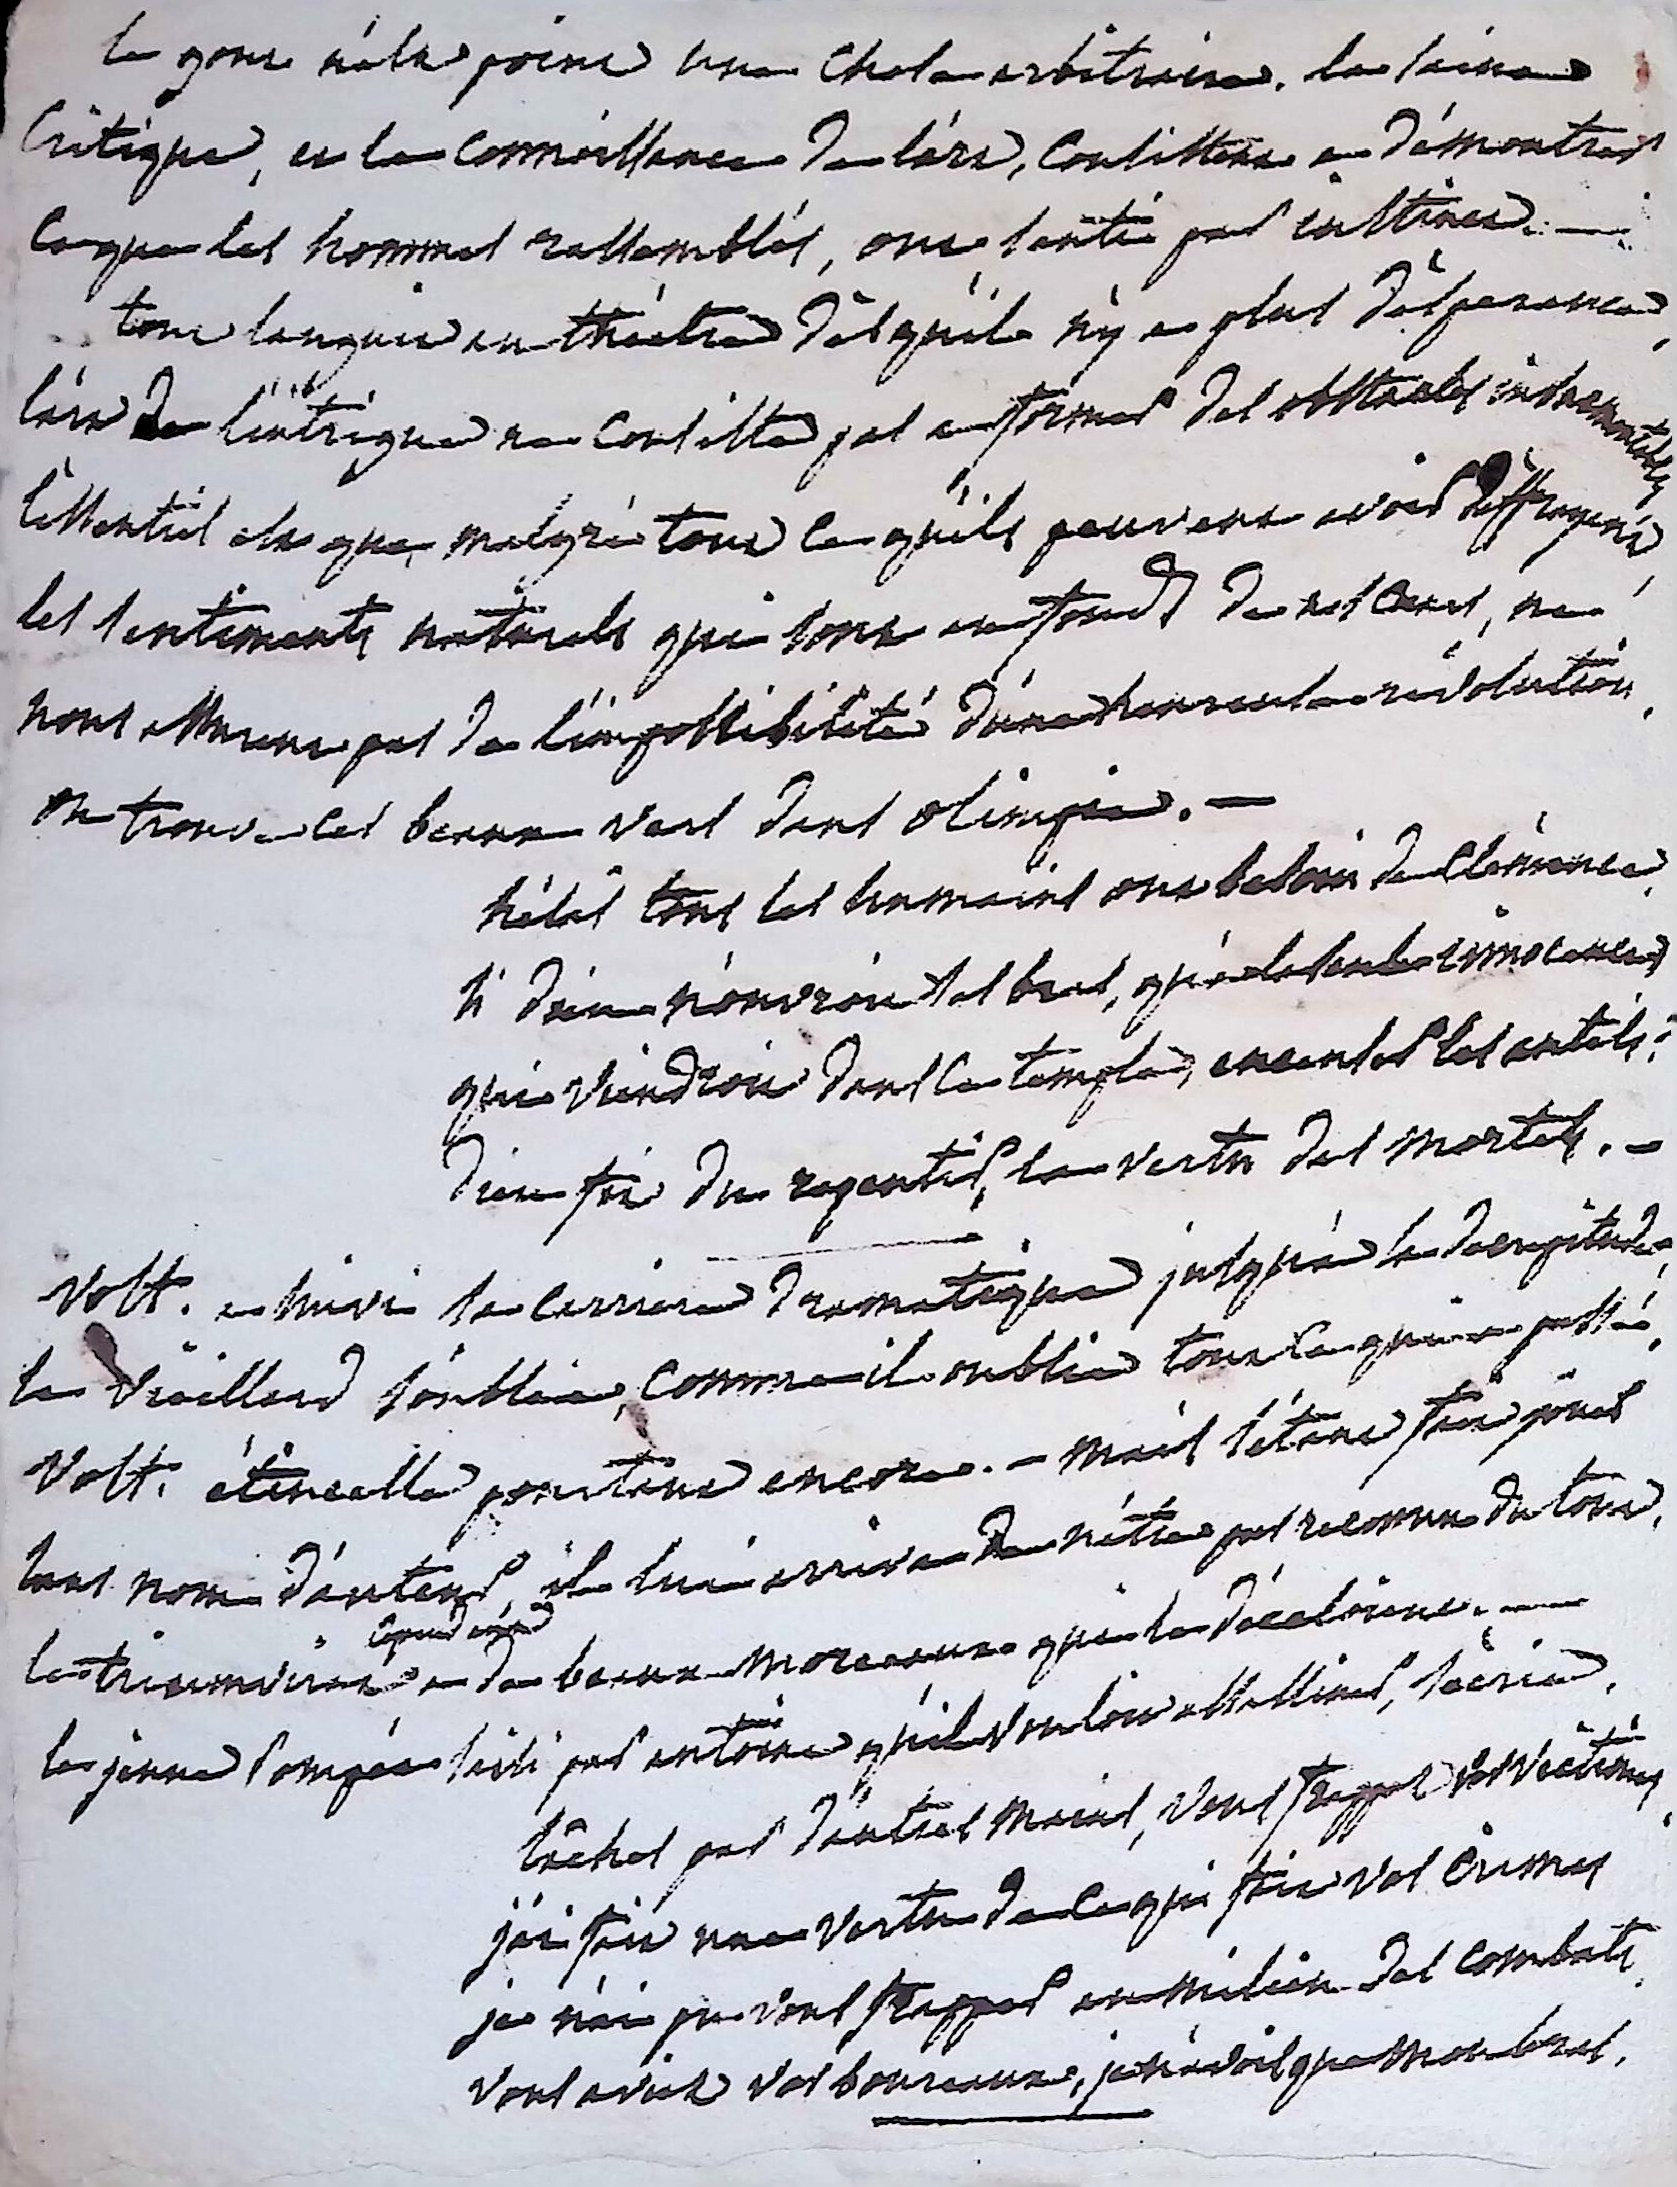 le gout n'est point une chose arbitraire. la saine
Critique, et la connoissance de l'art, consistent a démontrer
ce que les hommes rassemblés, ont senti par instinct. —
tout languit au théatre dès qu'il n'y a plus d'esperance,
l'art de l'intrigue ne consiste pas a former des obstacles insurmontables
l'essentiel est que, malgré tout ce qu'ils peuvent avoir d'effrayant
les sentiments naturels qui sont au fond de nos Cœurs, ne
nous assurent pas de l'impossibilité d'une heureuse révolution.
on trouve ces beaux vers dans olimpie. —
hélas tous les humains ont besoin de clémence
si dieu n'ouvroit ses bras, qu'a la seule innocence
qui viendroit dans ce temple, encenser les autels?
dieu fit du repentir, la vertu des mortels. —
Volt. a suivi la carriere dramatique jusqu'a la decrepitude,
le vieillard s'oublie, comme il oublie tout ce qui a passé,
Volt. étincelle pourtant encore. — mais s'étant fait jouer
sans nom d'auteur, il lui arriva de n'étre pas reconnu du tout.
le triumvirat cependant a de beaux morceaux qui le déceloient. —
le jeune Pompée saisi par antoine qu'il vouloit assassiner, s'écrie,
lâches par d'autres mains, vous frappez vos victimes,
j'ai fait une vertu de ce qui fait vos crimes
je n'ai pu vous frapper au milieu des combats,
vous aviez vos bourreaux, je n'avois que mon bras.